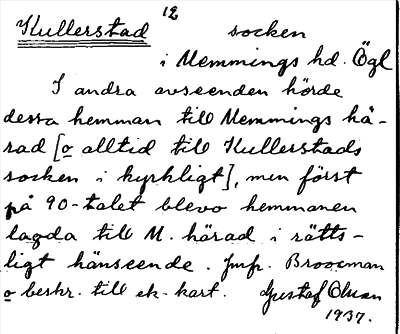 Kullerstad 12 socken
i Memmings hd. Ögl
I andra avseenden hörde
dessa hemman till Memmings hä-
rad [o alltid till Kullerstads
socken i kyrkligt], men först
på 90-talet blevo hemmanen
lagda till M. härad i rätts-
ligt hänseende. Jmf. Broocman
o beskr. till ek. kart. Gustaf Olsson
1937.